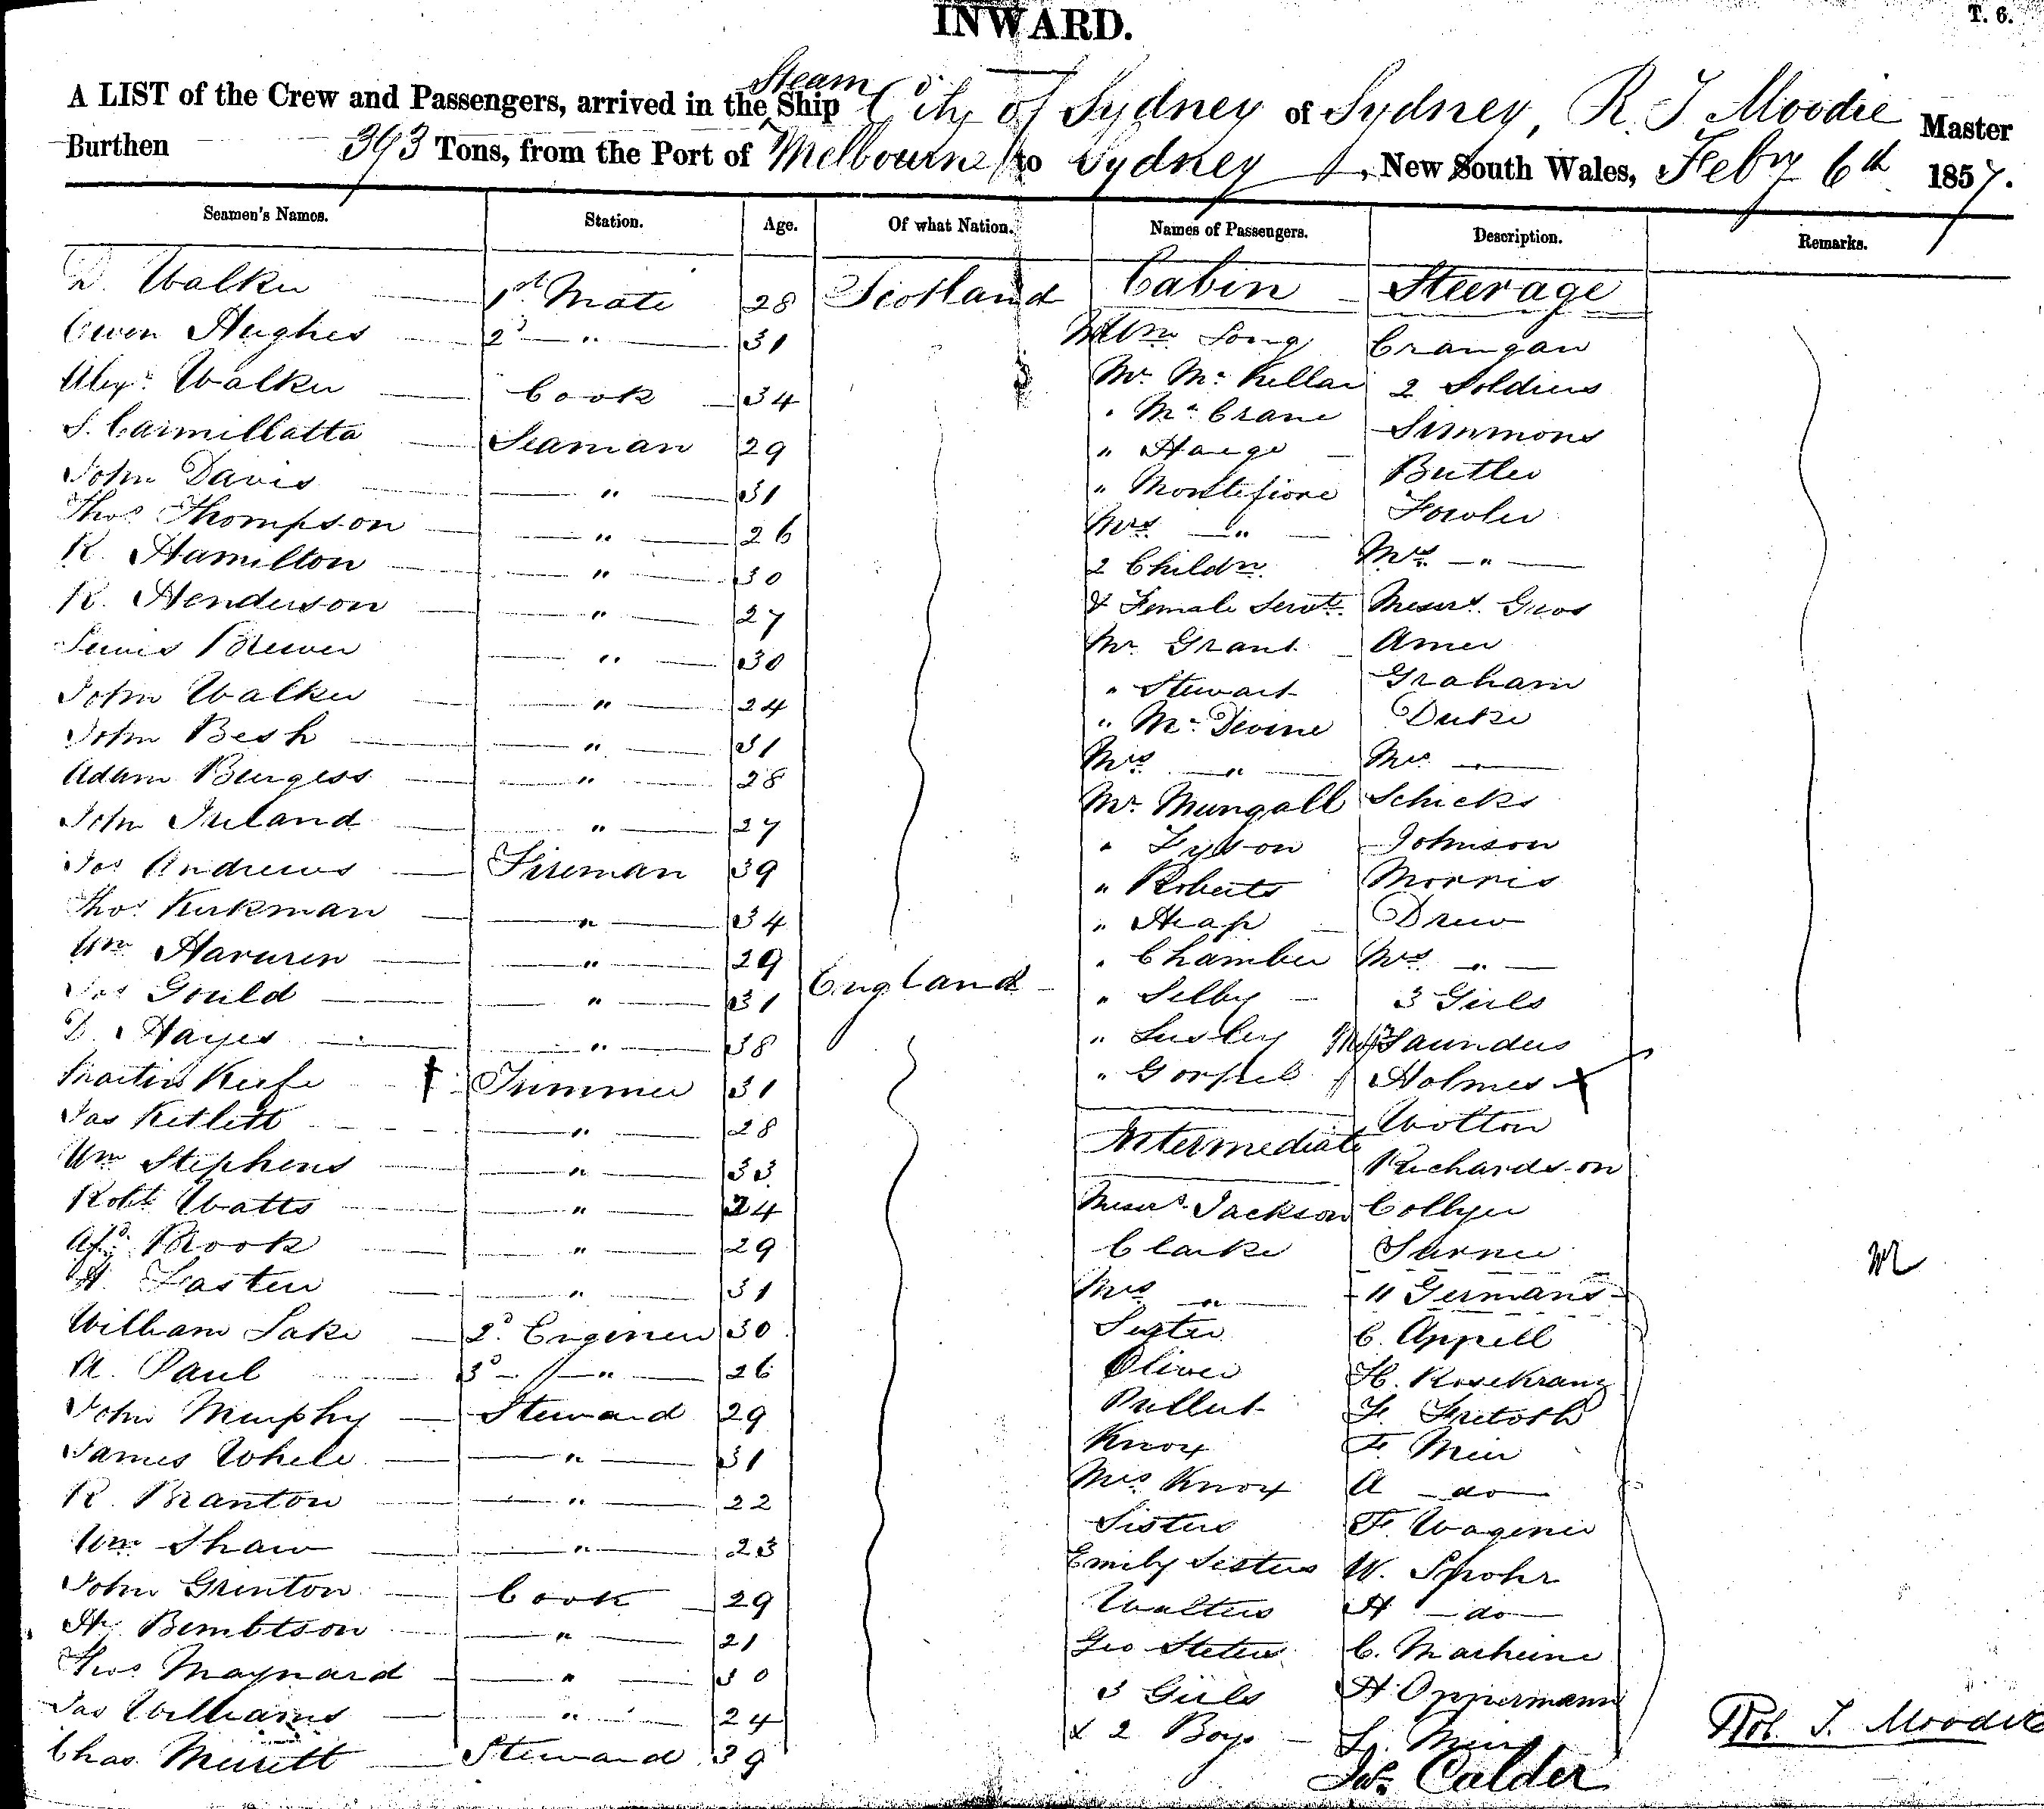 INWARD.
T. 6.
A LIST of the Crew and Passengers, arrived in the Steam Ship City of Sydney of Sydney, R. T. Moodie Master
Burthen 393 Tons, from the Port of Melbourne to Sydney, New South Wales, Feby 6th 1857.
Seamen's Names. Station. Age. Of what Nation. Names of Passengers. Description. Remarks.
D. Walker 1st Mate 28 Scotland Cabin Steerage
Owen Hughes 2d " 31 Wm Long Crangan
Alexr. Walker Cook 34 Mr. Mc Kellar 2 Soldiers
S. Carmillatta Seaman 29 " Mc Crane Simmons
John Davis " 31 " Haege Butler
Thos Thompson " 26 " Montefiore Fowler
R. Hamilton " 30 Mrs " Mrs "
R. Henderson " 27 2 Childn. & Female Servt. Messrs. Gros
Lewis Brewer " 30 Mr. Grant Amer
John Walker " 24 " Stewart Graham
John Besh " 31 " Mc Divine Duke
Adam Burgess " 28 Mrs " Mrs
John Ireland " 27 Mr. Mungall Schicks
Jos Andrews Fireman 39 " Tyson Johnson
Thos. Kirkman " 34 " Roberts Morris
Wm " 29 " Heap Drew
Jas Gould " 31 England " Chamber Mrs "
D. Hayes " 38 " Selby 3 Girls
Martin Keefe Trimmer 31 " Saunders
Jas Ketlett " 28 " Holmes
Wm Stephens " 33 Intermediate Wotton
Robt. Watts " 24 Richardson
Brook " 29 Messrs. Jackson Collyer
H. " 31 Clarke Turner
William Lake 2d. Engineer 30 Mrs " 11 Germans
A. Paul 3d " 26 C. Appell
John Murphy Steward 29 Oliver H. Rosekranz
James While " 31 F.
R. Branton " 22 Knox F. Mein
Wm Shaw " 23 Mrs Knox A do
John Grinton Cook 29 Sisters F. Wagener
H. Bembtson " 21 Emily Sisters W. Spohr
Thos Maynard " 30 Walters H do
Jas Williams " 24 Geo C.
Chas. Merrett Steward 39 3 Girls H Oppermann
& 2 Boys L. Mein
Jas. Calder
Rob. T. Moodie